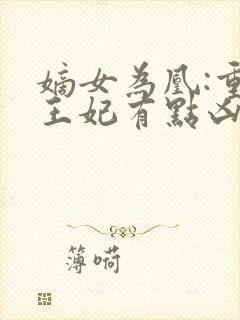 嫡女為凰:重
王妃有點凶
簿嗬